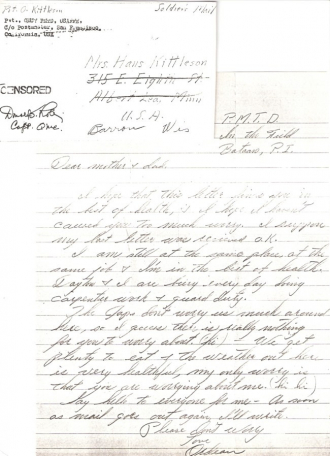 Pvt. O. Kittleson
Soldiers Mail
Pvt.,
C/o Postmaster, San Francisco,
California, USA
CENSORED
Capt.
Mrs Hans Kittleson
315 E. Eighth St
Albert Lea, Minn
U.S.A
Barron Wis
P.M.T.D
In the Field
Bataan, P.I.
Dear mother & dad.
I hope that this letter finds you in
the best of health, & I hope I havent
caused you too much worry. I suppose
my last letter was received O.K.
I am still at the same place, at the
same job & I'm in the best of health.
& I are busy every day doing
carpenter work & guard duty.
The Japs don't worry us much around
here, so I guess there is really nothing
for you to worry about. We get
plenty to eat & the weather out here
is very healthful, my only worry is
that you are worrying about me. (hi hi)
Say hello to everyone for me - As soon
as mail goes out again, I'll write.
Please don't worry
Love